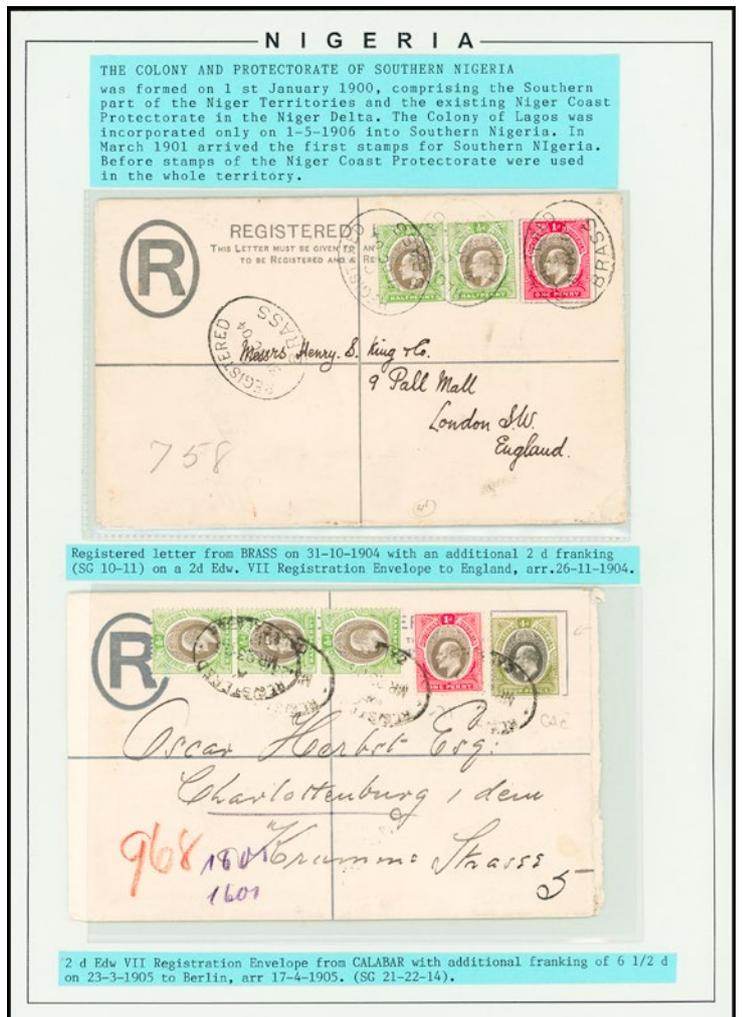 NIGERIA
THE COLONY AND PROTECTORATE OF SOUTHERN NIGERIA
was formed on 1 st January 1900, comprising the Southern
part of the Niger Territories and the existing Niger Coast
Protectorate in the Niger Delta. The Colony of Lagos was
incorporated only on 1-5-1906 into Southern Nigeria. In
March 1901 arrived the first stamps for Southern NIgeria.
Before stamps of the Niger Coast Protectorate were used
in the whole territory.
R
REGISTERED
THIS LETTER MUST BE GIVEN TO AN
TO BE REGISTERED AND A RE
HALFPENNY
HALFPENNY
ONE PENNY
BRASS
REGISTERED
BRASS
Messrs Henry S. King & Co.
9 Pall Mall
London S.W.
England.
758
Registered letter from BRASS on 31-10-1904 with an additional 2 d franking
(SG 10-11) on a 2d Edw. VII Registration Envelope to England, arr.26-11-1904.
R
ONE PENNY
REGISTERED
Oscar Herbst Esq:
Charlottenburg
Krumme Strasse
5
968
1601
2 d Edw VII Registration Envelope from CALABAR with additional franking of 6 1/2 d
on 23-3-1905 to Berlin, arr 17-4-1905. (SG 21-22-14).